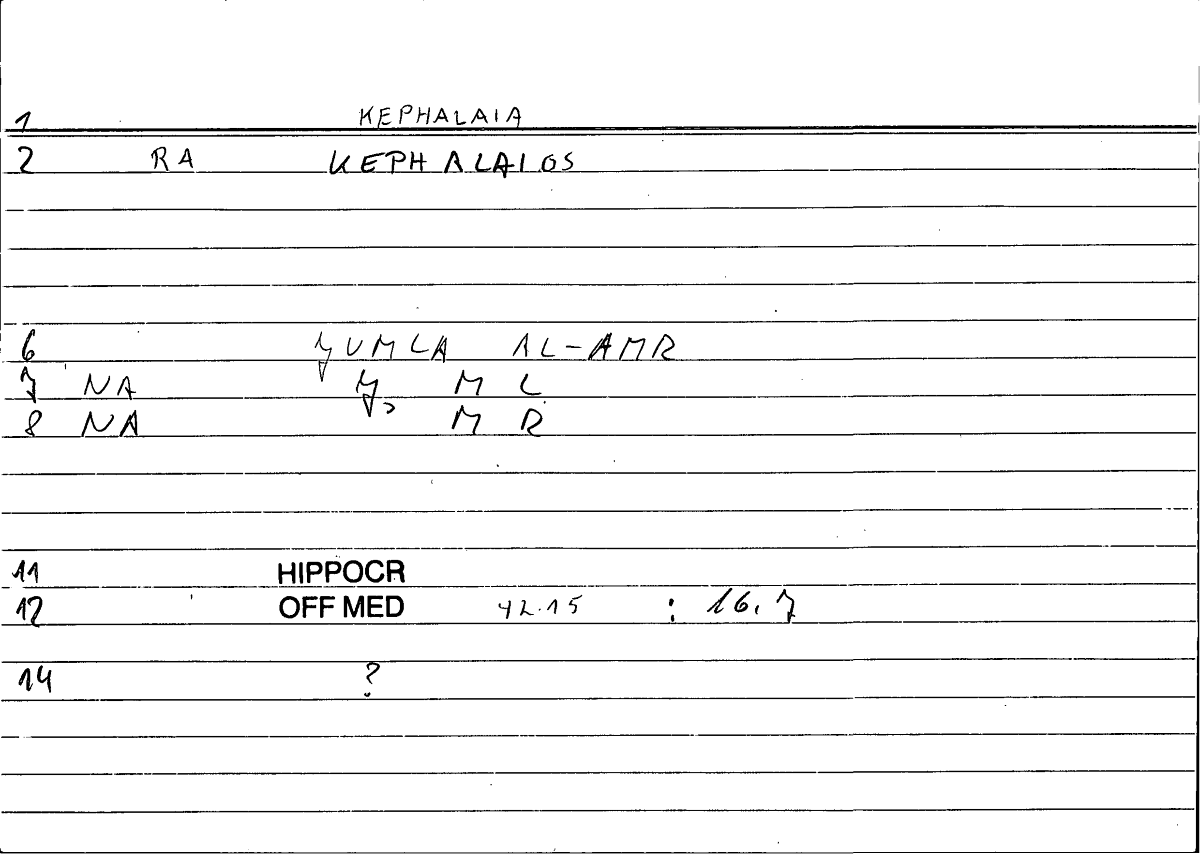 1 KEPHALAIA
2 RA KEPHALAIOS
6 ǧUMLA AL-AMR
7 NA ǧ M L
8 NA ʾ M R
11 HIPPOCR
12 OFF MED 42.15 : 16.7
14 ?